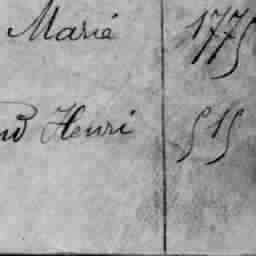 Marié 1775
Henri 515